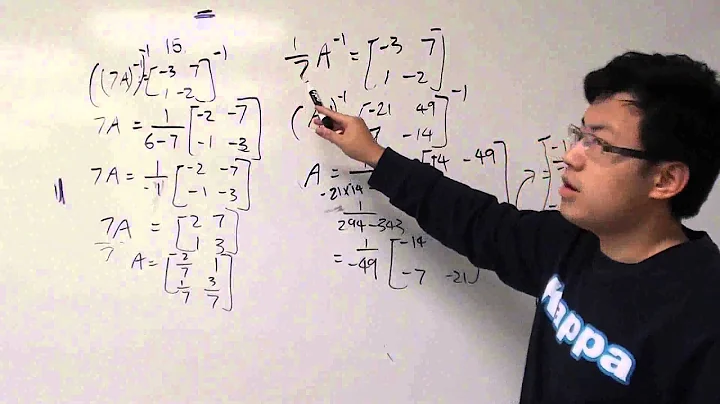 15.
((7A)^-1)^-1 = [-3 7
1 -2]^-1
7A = 1/(6-7) [-2 -7
-1 -3]
7A = 1/-1 [-2 -7
-1 -3]
7A/7 = [2 7
1 3]
A = [2/7 1
1/7 3/7]
1/7 A^-1 = [-3 7
1 -2]
-21 49
-14]^-1
A =
-49]
-21×14
1/(294-343)
= 1/-49 [-14
-7 -21]
Mappa